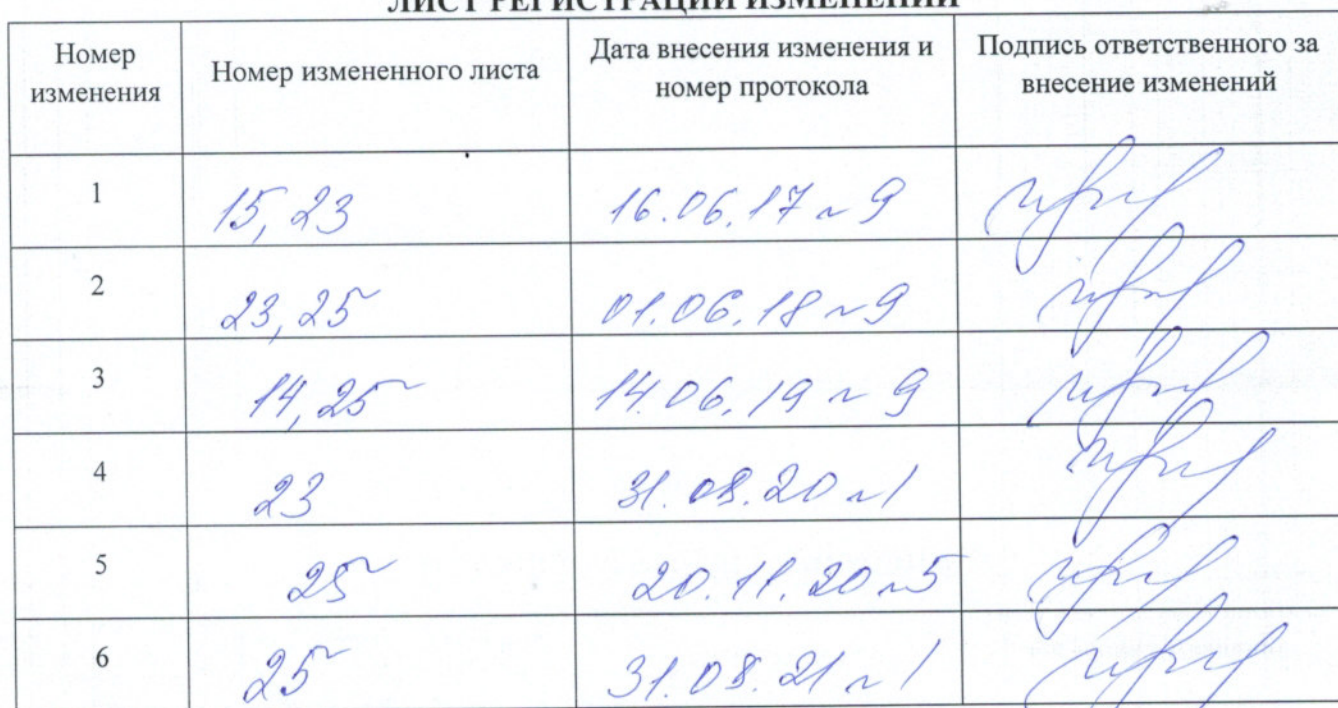 ЛИСТ РЕГИСТРАЦИИ ИЗМЕНЕНИЙ
Номер изменения
Номер измененного листа
Дата внесения изменения и номер протокола
Подпись ответственного за внесение изменений
1 15, 23 16.06.17 ~ 9
2 23, 25 01.06.18 ~ 9
3 14, 25 14.06.19 ~ 9
4 23 31.08.20 ~ 1
5 25 20.11.20 ~ 5
6 25 31.08.21 ~ 1